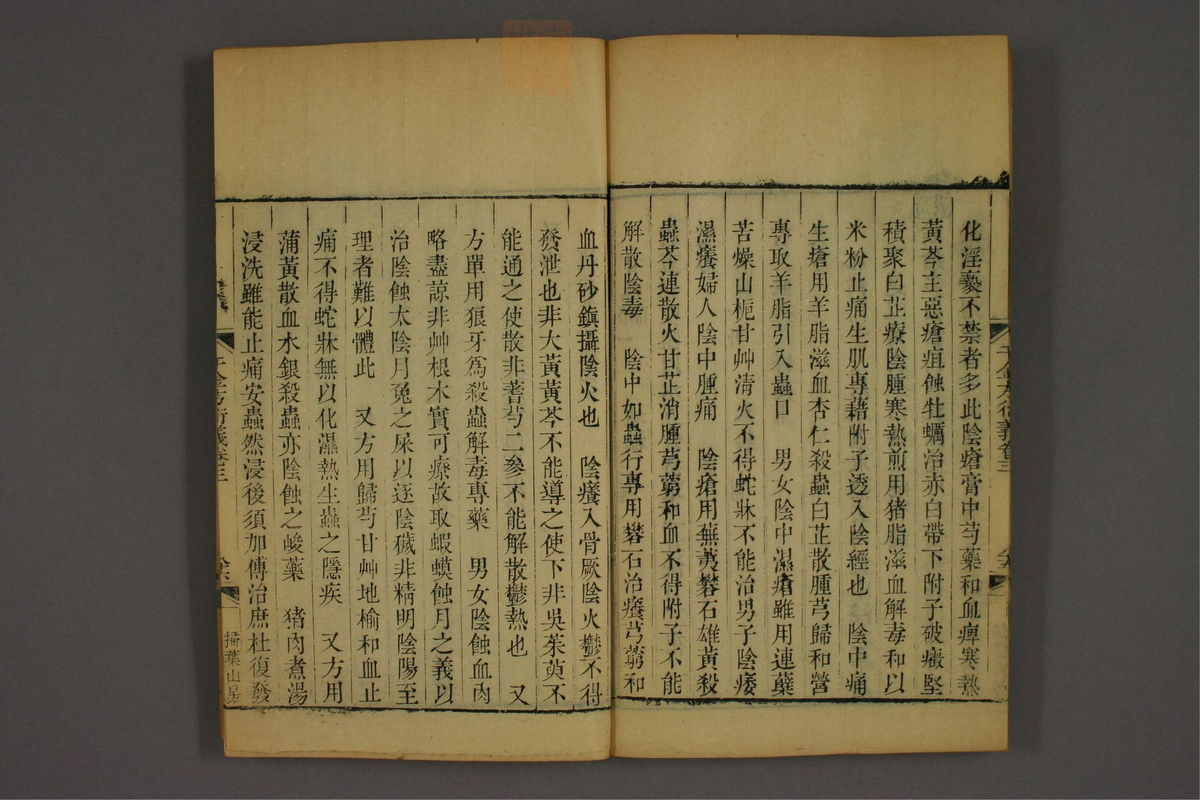 化淫褻不禁者多此陰瘡膏中芍藥和血痺寒熱
黃芩主惡瘡疽蝕牡蠣治赤白帶下附子破癥堅
積聚白芷療陰腫寒熱煎用猪脂滋血解毒和以
米粉止痛生肌專藉附子透入陰經也　陰中痛
生瘡用羊脂滋血杏仁殺蟲白芷散腫芎歸和營
專取羊脂引入蟲口　男女陰中濕瘡雖用連蘗
苦燥山梔甘艸清火不得蛇牀不能治男子陰痿
濕癢婦人陰中腫痛　陰瘡用蕪荑礬石雄黃殺
蟲芩連散火甘芷消腫芎藭和血不得附子不能
解散陰毒　陰中如蟲行專用礬石治癢芎藭和
千金方衍義卷三
血丹砂鎮攝陰火也　陰癢入骨厥陰火鬱不得
發泄也非大黃黃芩不能導之使下非吳茱萸不
能通之使散非蓍芍二參不能解散鬱熱也　又
方單用狼牙為殺蟲解毒專藥　男女陰蝕血肉
略盡諒非艸根木實可療故取蝦蟆蝕月之義以
治陰蝕太陰月兔之屎以逐陰穢非精明陰陽至
理者難以體此　又方用歸芍甘艸地榆和血止
痛不得蛇牀無以化濕熱生蟲之隱疾　又方用
蒲黃散血水銀殺蟲亦陰蝕之峻藥　猪肉煮湯
浸洗雖能止痛安蟲然浸後須加傅治庶杜復發
千金方衍義卷三
掃葉山房